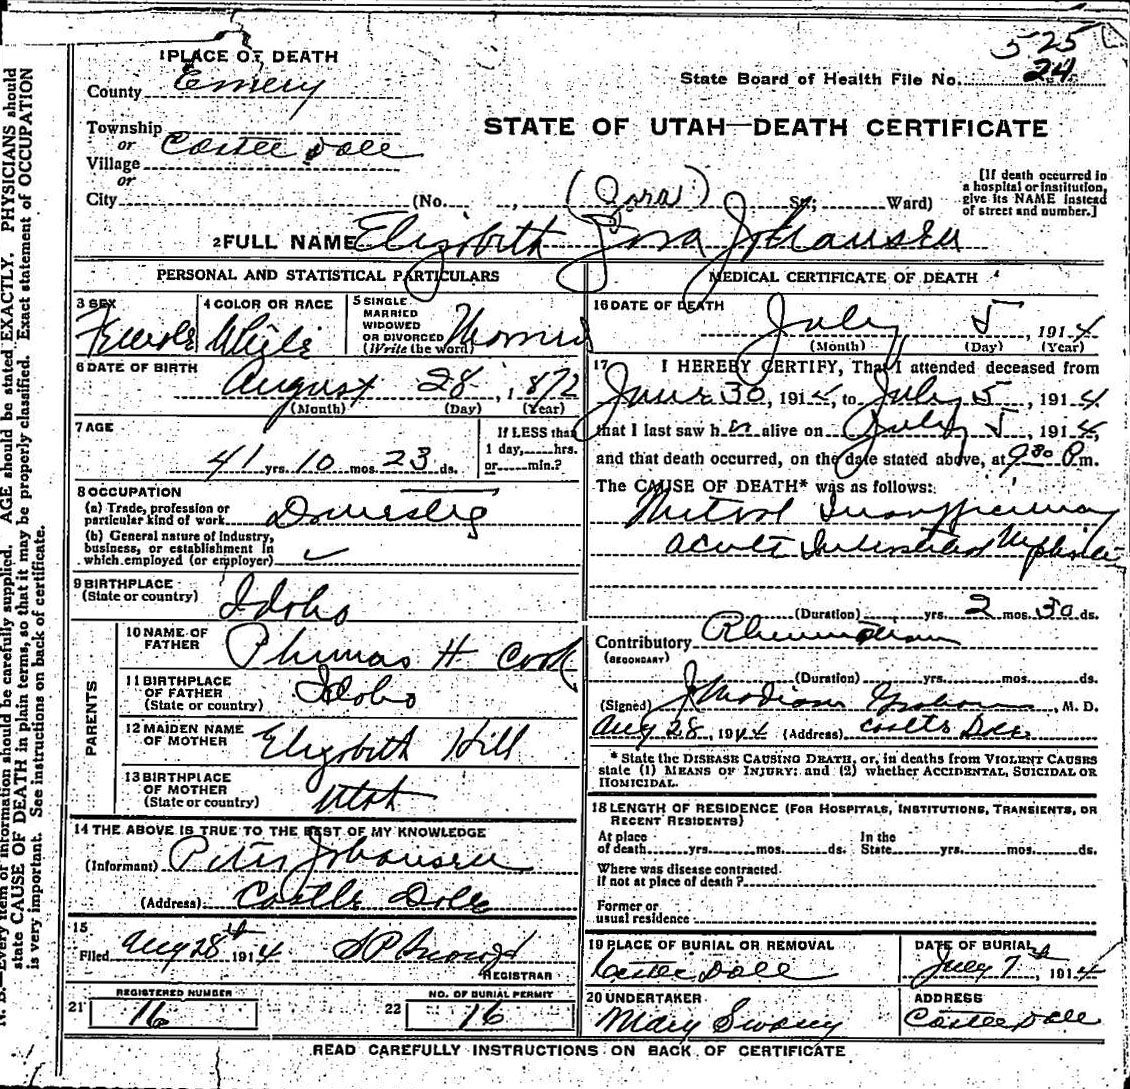 525
24
1 PLACE OF DEATH
State Board of Health File No.
County Emery
STATE OF UTAH—DEATH CERTIFICATE
Township
or Castle Dale
Village
or
City (No. , St; Ward)
(Zora)
[If death occurred in
a hospital or institution,
give its NAME instead
of street and number.]
2 FULL NAME Elizabeth Zora Johansen
PERSONAL AND STATISTICAL PARTICULARS
3 SEX Female
4 COLOR OR RACE White
5 SINGLE
MARRIED
WIDOWED
OR DIVORCED
(Write the word) Married
6 DATE OF BIRTH
August 28, 1872
(Month) (Day) (Year)
7 AGE
41 yrs. 10 mos. 23 ds.
If LESS than
1 day, hrs.
or min.?
8 OCCUPATION
(a) Trade, profession or
particular kind of work Domestic
(b) General nature of industry,
business, or establishment in
which employed (or employer) ✓
9 BIRTHPLACE
(State or country) Idaho
PARENTS
10 NAME OF
FATHER Phineas H Cook
11 BIRTHPLACE
OF FATHER
(State or country) Idaho
12 MAIDEN NAME
OF MOTHER Elizabeth Hill
13 BIRTHPLACE
OF MOTHER
(State or country) Utah
14 THE ABOVE IS TRUE TO THE BEST OF MY KNOWLEDGE
(Informant) Peter Johansen
(Address) Castle Dale
15
Filed Aug 28th 1914
REGISTRAR
REGISTERED NUMBER
21 16
NO. OF BURIAL PERMIT
22 16
MEDICAL CERTIFICATE OF DEATH
16 DATE OF DEATH
July 5, 1914
(Month) (Day) (Year)
17 I HEREBY CERTIFY, That I attended deceased from
June 30, 1914, to July 5, 1914
that I last saw her alive on July 5, 1914,
and that death occurred, on the date stated above, at 9 30 P.m.
The CAUSE OF DEATH* was as follows:
Mitral Insufficiency
acute Interstitial Nephritis
(Duration) yrs. 2 mos. 30 ds.
Contributory Rheumatism
(SECONDARY)
(Duration) yrs. mos. ds.
(Signed) J Madison Graham, M. D.
Aug 28, 1914 (Address) Castle Dale
* State the DISEASE CAUSING DEATH, or, in deaths from VIOLENT CAUSES
state (1) MEANS OF INJURY; and (2) whether ACCIDENTAL, SUICIDAL OR
HOMICIDAL.
18 LENGTH OF RESIDENCE (FOR HOSPITALS, INSTITUTIONS, TRANSIENTS, OR
RECENT RESIDENTS)
At place
of death yrs. mos. ds.
In the
State yrs. mos. ds.
Where was disease contracted
if not at place of death?
Former or
usual residence
19 PLACE OF BURIAL OR REMOVAL
Castle Dale
DATE OF BURIAL
July 7th, 1914
20 UNDERTAKER
Mary Swasey
ADDRESS
Castle Dale
READ CAREFULLY INSTRUCTIONS ON BACK OF CERTIFICATE
N. B.—Every item of information should be carefully supplied. AGE should be stated EXACTLY. PHYSICIANS should
state CAUSE OF DEATH in plain terms, so that it may be properly classified. Exact statement of OCCUPATION
is very important. See instructions on back of certificate.